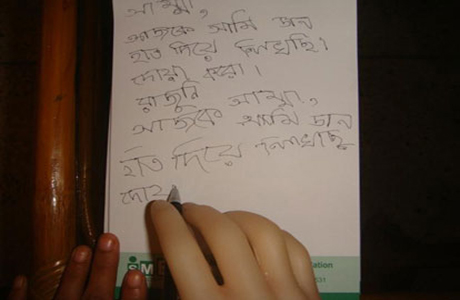 আম্মা,
আজকে আমি ডান
হাত দিয়ে লিখছি।
দোয়া করো।
আম্মা,
আজকে আমি ডান
হাত দিয়ে লিখছি
দোয়